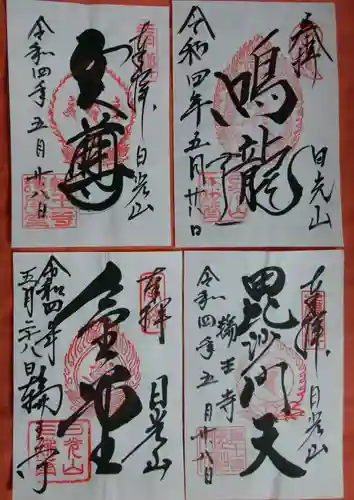 奉拝
日光山
天尊
令和四年五月廿八日
奉拝
日光山
鳴龍
令和四年五月廿八日
奉拝
日光山
令和四年
五月廿八日
輪王寺
奉拝
日光山
毘沙門天
輪王寺
令和四年五月廿八日